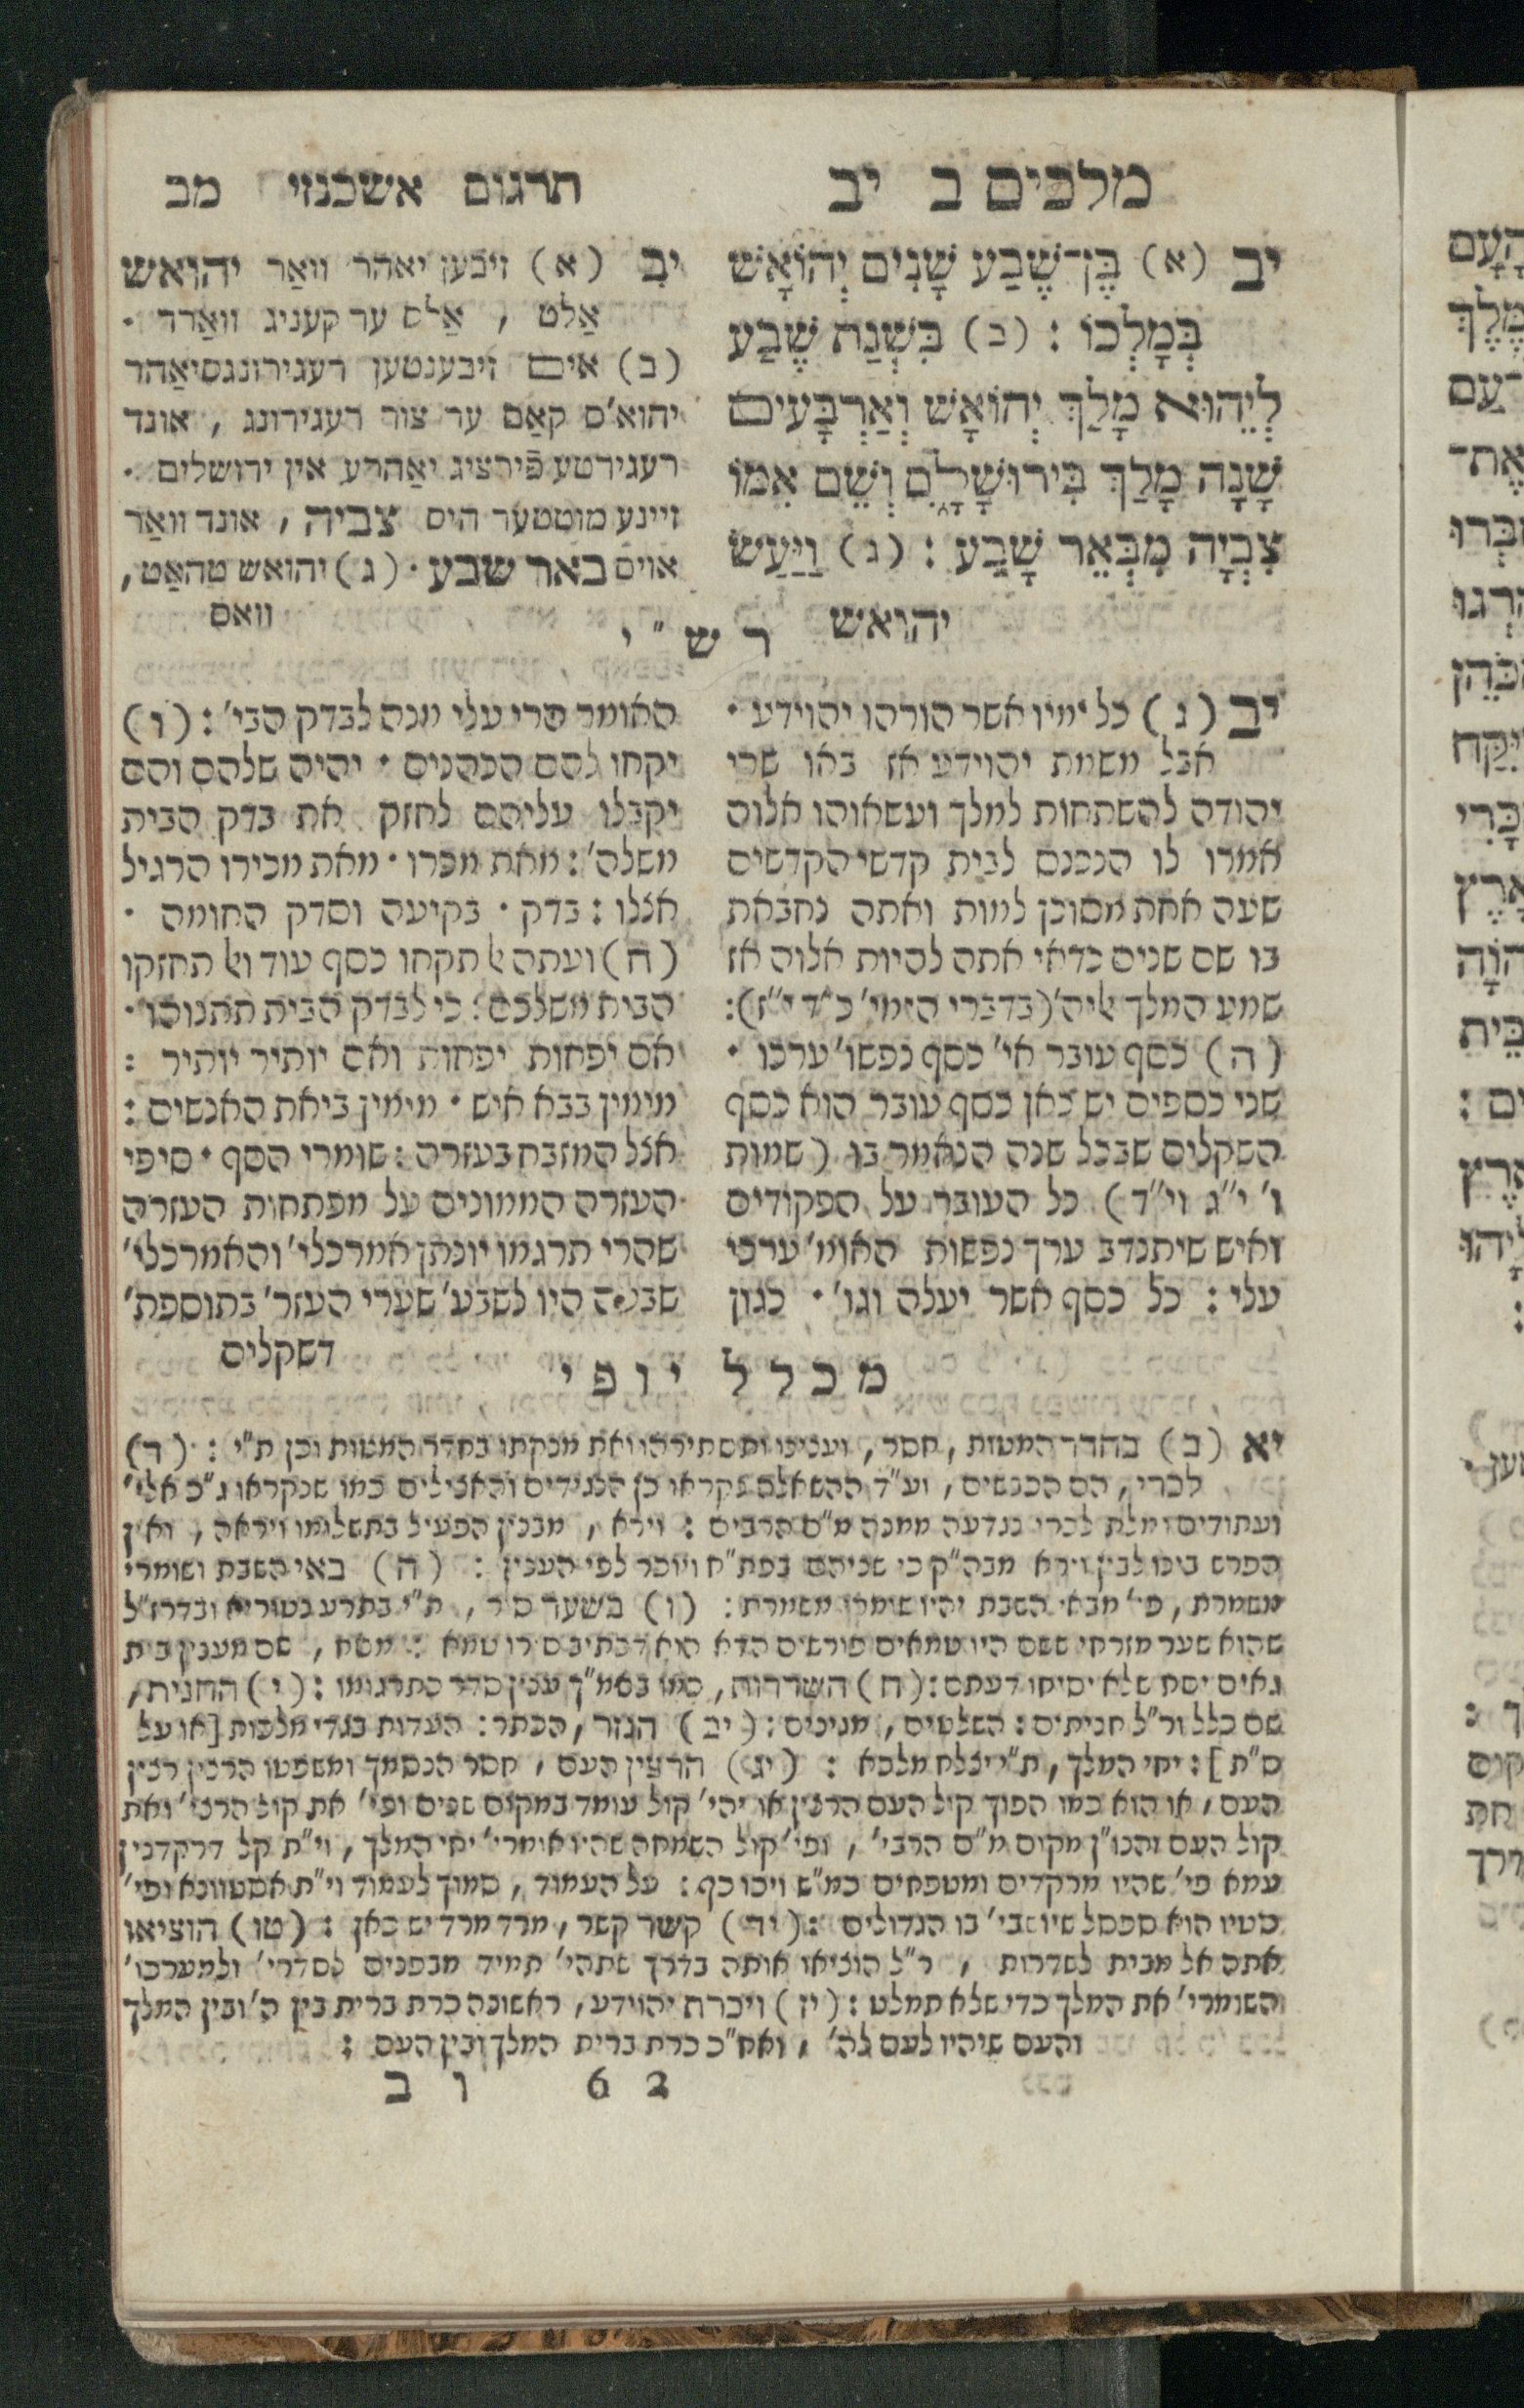 מלכים ב יב
תרגום אשכנזי מב
יב (א) בֶּן־שֶׁבַע שָׁנִים יְהוֹאָשׁ
בְּמָלְכוֹ : (ב) בִּשְׁנַת שֶׁבַע
לְיֵהוּא מָלַךְ יְהוֹאָשׁ וְאַרְבָּעִים
שָׁנָה מָלַךְ בִּירוּשָׁלָ͏ִם וְשֵׁם אִמּוֹ
צִבְיָה מִבְּאֵר שָׁבַע : (ג) וַיַּעַשׂ
יהואש
יב (א) זיבען יאהר וואַר יהואש
אַלט , אַלס ער קעניג וואַרד .
(ב) אים זיבענטען רעגירונגסיאַהר
יהוא'ס קאַם ער צור רעגירונג , אונד
רעגירטע פֿירציג יאַהרע אין ירושלים .
זיינע מוטטער היס צביה , אונד וואַר
אויס באר שבע . (ג) יהואש טהאַט ,
וואס
רש"י
יב (ג) כל ימיו אשר הורהו יהוידע .
אבל משמת יהוידע אז באו שרי
יהודה להשתחות למלך ועשאוהו אלוה
אמרו לו הנכנס לבית קדשי הקדשים
שעה אחת מסוכן למות ואתה נחבאת
בו שם שנים כדאי אתה להיות אלוה אז
שמע המלך אליה' (בדברי הימי' כ"ד י"ז):
(ה) כסף עובר אי' כסף נפשו' ערכו .
שני כספים יש כאן כסף עובר הוא כסף
השקלים שבכל שנה הנאמר בו (שמות
ו' י"ג וי"ד) כל העובר על הפקודים
ואיש שיתנדב ערך נפשות האומ' ערכי
עלי : כל כסף אשר יעלה וגו' . כגון
האומר הרי עלי מנה לבדק הבי' : (ו)
יקחו להם הכהנים . יהיה שלהם והם
יקבלו עליהם לחזק את בדק הבית
משלה' : מאת מכרו . מאת מכירו הרגיל
אצלו : בדק . בקיעה וסדק החומה .
(ח) ועתה אל תקחו כסף עוד ואל תחזקו
הבית משלכם : כי לבדק הבית תתנוהו .
אם יפחות יפחות ואם יותיר יותיר :
מימין בבא איש . מימין ביאת האנשים :
אצל המזבח בעזרה : שומרי הסף . סיפי
העזרה הממונים על מפתחות העזרה
שהרי תרגמו יונתן אמרכלי' והאמרכלי'
שבעה היו לשבע' שערי העזר' בתוספת'
דשקלים
מכלל יופי
יא (ב) בחדר המטות , חסר , וענינו ותסתירהו ואת מנקתו בחדר המטות וכן ת"י : (ד)
לכרי , הם הכבשים , וע"ד ההשאלה נקראו כן הנגידים והאצילים כמו שנקראו ג"כ אלי'
ועתודים ומלת לכרי בנדעה ממנה מ"ם הרבים : וירא , מבנין הפעיל בתשלומו ויראה , ואין
הפרש בינו לבין וירא מבה"ק כי שניהם בפת"ח ויוכר לפי הענין : (ה) באי השבת ושומרי
משמרת , פי' מבאי השבת יהיו שומרי משמרת : (ו) בשער סיר , ת"י בתרע גטוריא ובדרז"ל
שהוא שער מזרחי ששם היו טמאים פורשים הדא הוא דכתיב סורו טמא : מסח , שם מענין בית
גאים יסח שלא יסיחו דעתם : (ח) השדרות , כמו בסמ"ך ענין סדר כתרגומו : (י) החנית ,
שם כלל ור"ל חניתים : השלטים , מגינים : (יב) הנזר , הכתר : העדות בגדי מלכות [או על
ס"ת] : יחי המלך , ת"י יצלח מלכא : (יג) הרצין העם , חסר הנסמך ומשפטו הרצין רצין
העם , או הוא כמו הפוך קול העם הרצין או יהי' קול עומד במקום שנים ופי' את קול הרצי' ואת
קול העם והנו"ן מקום מ"ם הרבי' , ופי' קול השמחה שהיו אומרי' יחי המלך , וי"ת קל דרקדנין
עמא פי' שהיו מרקדים ומטפחים כמ"ש ויכו כף : על העמוד , סמוך לעמוד וי"ת אסטוונא ופי'
סטיו הוא ספסל שיושבי' בו הגדולים : (יד) קשר קשר , מרד מרד יש כאן : (טו) הוציאו
אתה אל מבית לשדרות , ר"ל הוציאו אותה בדרך שתהי' תמיד מבפנים לסדרי' ולמערכו'
השומרי' את המלך כדי שלא תמלט : (יז) ויכרת יהוידע , ראשונה כרת ברית בין ה' ובין המלך
והעם שיהיו לעם לה' , ואח"כ כרת ברית המלך ובין העם :
ו ב 6 2